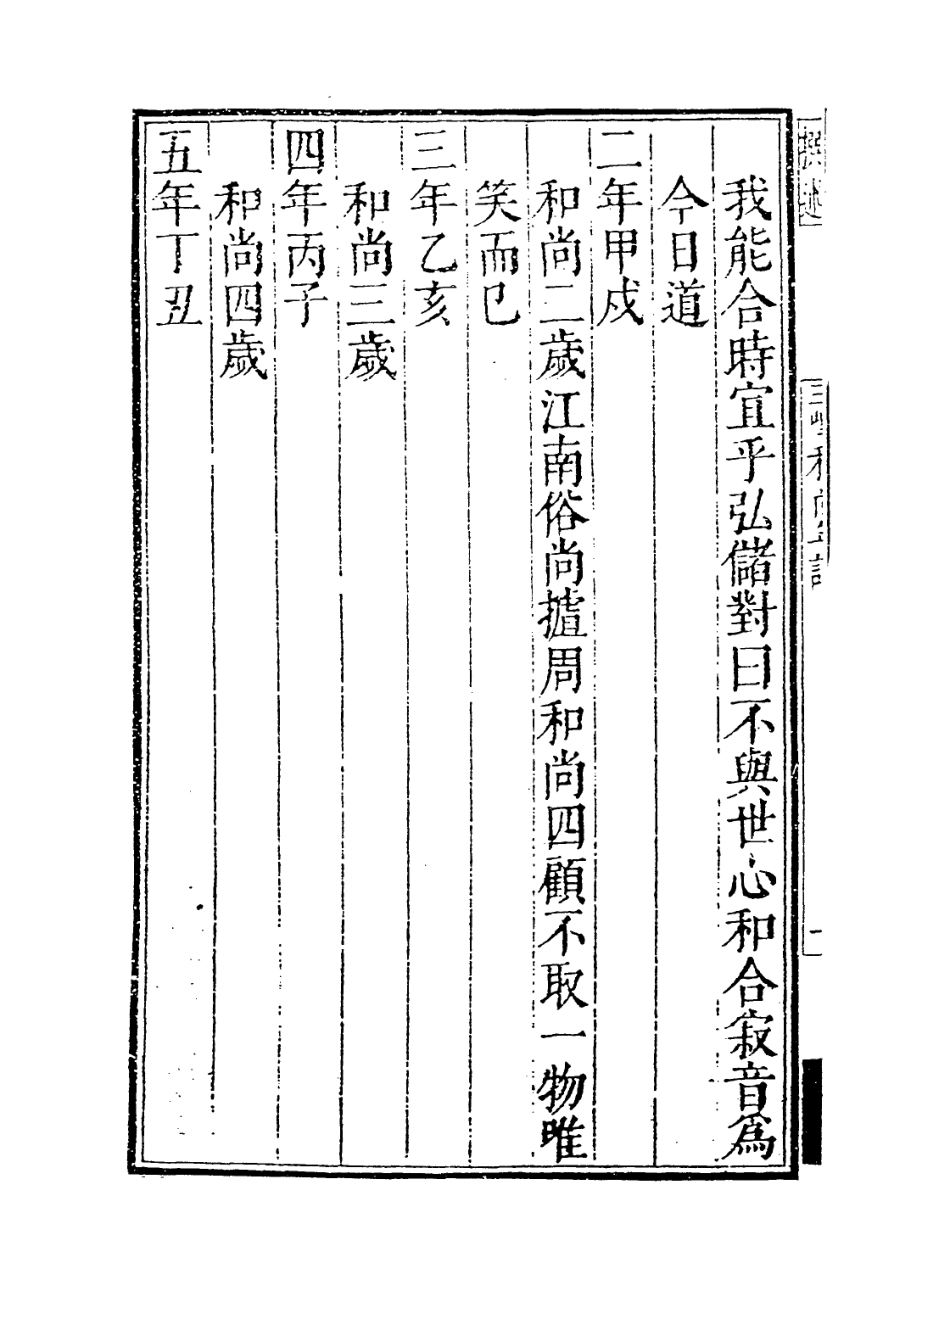 我能合時宜乎弘儲對曰不與世心和合寂音爲
今日道
二年甲戍
和尚二歲江南俗尚摣周和尚四顧不取一物唯
笑而已
三年乙亥
和尚三歲
四年丙子
和尚四歲
五年丁丑
撰述
三峰和尚年譜